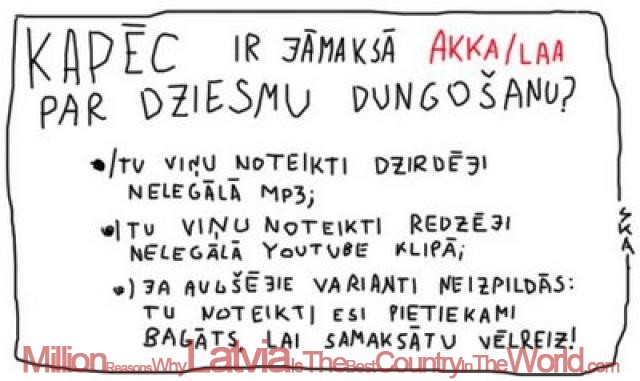 KAPĒC IR JĀMAKSĀ AKKA/LAA
PAR DZIESMU DUNGOŠANU?
•/TU VIŅU NOTEIKTI DZIRDĒJI
NELEGĀLĀ MP3;
•) TU VIŅU NOTEIKTI REDZĒJI
NELEGĀLĀ YOUTUBE KLIPĀ;
•) JA AUGŠĒJIE VARIANTI NEIZPILDĀS:
TU NOTEIKTI ESI PIETIEKAMI
BAGĀTS, LAI SAMAKSĀTU VĒLREIZ!
MillionReasonsWhyLatviaIsTheBestCountryInTheWorld.com